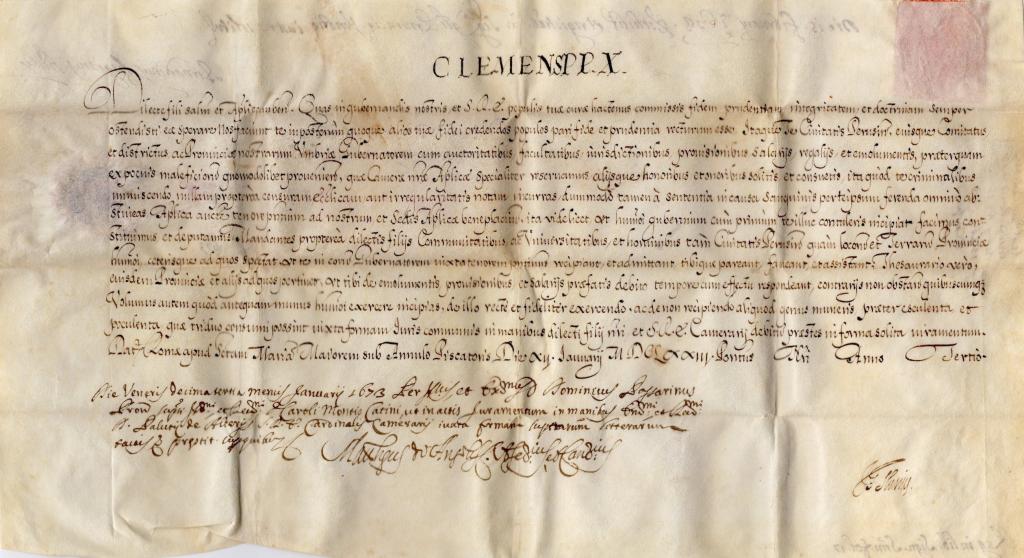 CLEMENS PP. X.
Dilecte fili salut et Aplicam ben. Quas in gubernandis nostris et S.R.E. populis tuæ curæ hactenus commissis fidem prudentiam, integritatem, et doctrinam semper
ostendisti ea sperare nos faciunt te in posterum quoque alios tuæ fidei credendos populos pari fide et prudentia recturum esse. Itaque Te Civitatis Perusin, eiusque Comitatus
et districtus ac Provinciæ nostrarum Umbriæ Gubernatorem cum auctoritatibus facultatibus, iurisdictionibus, provisionibus salarijs, regalijs, et emolumentis, præterquam
ex poenis maleficiorũ quomodolibet provenien, quæ Cameræ nræ Aplicæ specialiter reservamus alijsque honoribus et oneribus solitis et consuetis, ita quod te criminalibus
inmiscendo nullam propterea censuram Ecclicam aut irregularitatis notam incurras, dummodo tamen à sententia in causa sanguinis per te ipsum ferenda omninò ab-
stineas Aplica aucte tenore pntium ad nostrum et Sedis Aplicæ beneplacitũ, ita videlicet, ut huiusi gubernium cum primum te illuc contuleris incipiat facimus cons-
tituimus et deputamus. Mandantes propterea dilectis filijs Communitatibus, et Universitatibus, et hominibus tàm Civitatis Perusin quam locorũ et Terrarũ Provinciæ
huiusi, ceterisque ad quos spectat, ut te in eorũ Gubernatorem iuxta tenorem pntium recipiant, et admittant tibique pareant, faveant, et assistant; Thesaurario verò
eiusdem Provinciæ et alijs ad quos pertinet, ut tibi de emolumentis, provisionibus, et salarijs præfatis debito tempore cum effectu respondeant, contrarijs non obstañ quibuscumq3
Volumus autem quòd antequam munus huiusi exercere incipias, de illo rectè et fideliter exercendo, ac de non recipiendo aliquod genus muneris præter esculenta et
poculenta, quæ triduo consumi possint iuxta formam Iuris communis in manibus dilecti filij nri et S.R.E. Camerarij debitũ præstes in forma solita iuramentum.
Dat. Romæ apud Sctam Mariã Maiorem sub Annulo Piscatoris Die XII. Ianuarij MDCLXXIII. Pontus Nri Anno Tertio.
Die Veneris decima tertia mensis Januarij 1673 Per Illus et Rmus D Dominicus
Caroli Montis Catini, ut in actis Juramentum in manibus Emi et Rmi
D. Palutij de Alterijs S.R.E. Cardinalis Camerarij iuxta formam suprarum litterarum